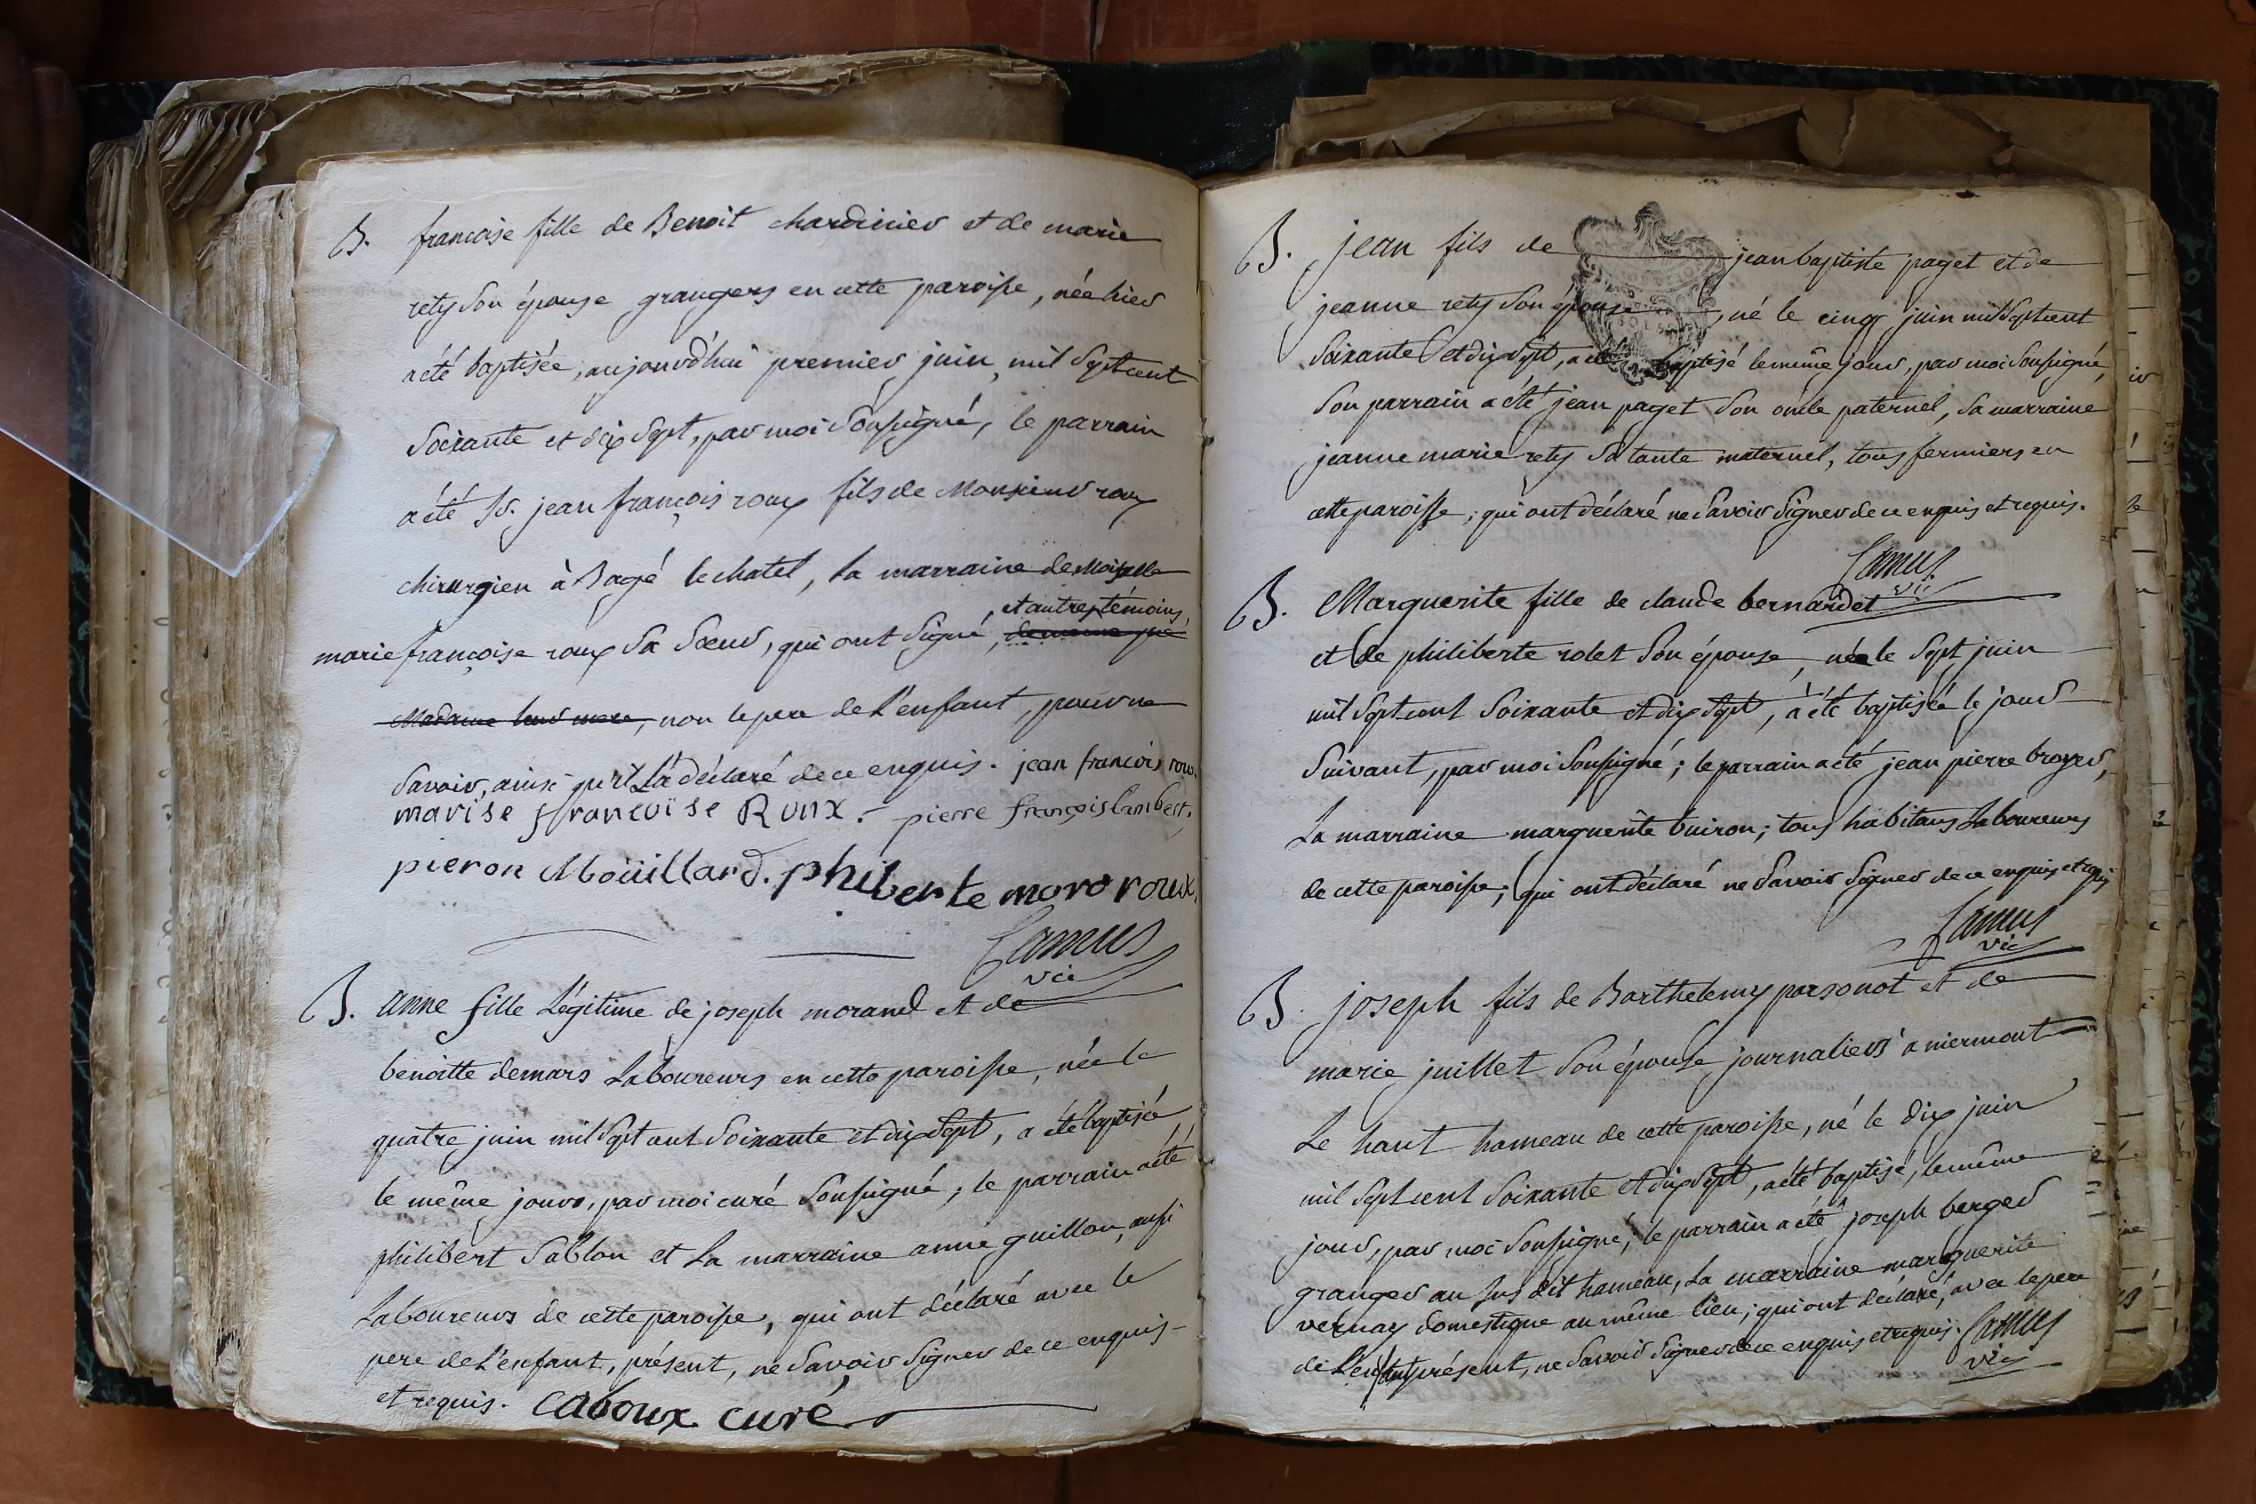 B. francoise fille de Benoit chardinier et de marie
rety son épouse grangers en cette paroisse, née hier
a été baptisée, aujourd'hui premier juin, mil sept cent
soixante et dix sept, par moi soussigné, le parrain
a été Sr. jean françois roux fils de Monsieur roux
chirurgien à Bagé le chatel, la marraine demoiselle
et autres témoins
marie françoise roux sa soeur, qui ont signé,
Madame leur mere, non le pere de l'enfant, pour ne
savoir, ainsi qu'il l'a déclaré de ce enquis. jean francois roux.
marise francoise Roux. pierre françois lambert.
pieron Moüillard. philiberte moro roux.
Camus
vic
B. anne fille légitime de joseph morand et de
benoitte demars laboureurs en cette paroisse, née le
quatre juin mil sept cent soixante et dix sept, a été baptisée
le même jours, par moi curé soussigné; le parrain a été
philibert sablon et la marraine anne guillon, aussi
laboureurs de cette paroisse, qui ont déclaré avec le
pere de l'enfant, présent, ne savoir signer de ce enquis
et requis. caboux curé
B. jean fils de jean baptiste paget et de
jeanne rety son épouse, né le cinq juin mil sept cent
soixante et dix sept, a été baptisé le même jour, par moi soussigné,
son parrain a été jean paget son oncle paternel, sa marraine
jeanne marie rety sa tante maternel, tous fermiers en
cette paroisse; qui ont déclaré ne savoir signer de ce enquis et requis.
Camus
vic
B. Marguerite fille de claude bernardet
et de philiberte rolet son épouse, née le sept juin
mil sept cent soixante et dix sept, a été baptisée le jour
suivant, par moi soussigné; le parrain a été jean pierre broyer,
la marraine marguerite buiron; tous habitans laboureurs
de cette paroisse; qui ont déclaré ne savoir signer de ce enquis et requis
Camus
vic
B. joseph fils de Barthelemy porsonot et de
marie juillet son épouse journaliers a niermont
le haut hameau de cette paroisse, né le dix juin
mil sept cent soixante et dix sept, a été baptisé, le même
jour, par moi soussigné; le parrain a été joseph berger
granger au sus dit hameau, la marraine marguerite
vernay domestique au même lieu; qui ont déclaré, avec le pere
de l'enfant présent, ne savoir signer de ce enquis et requis. Camus
vic